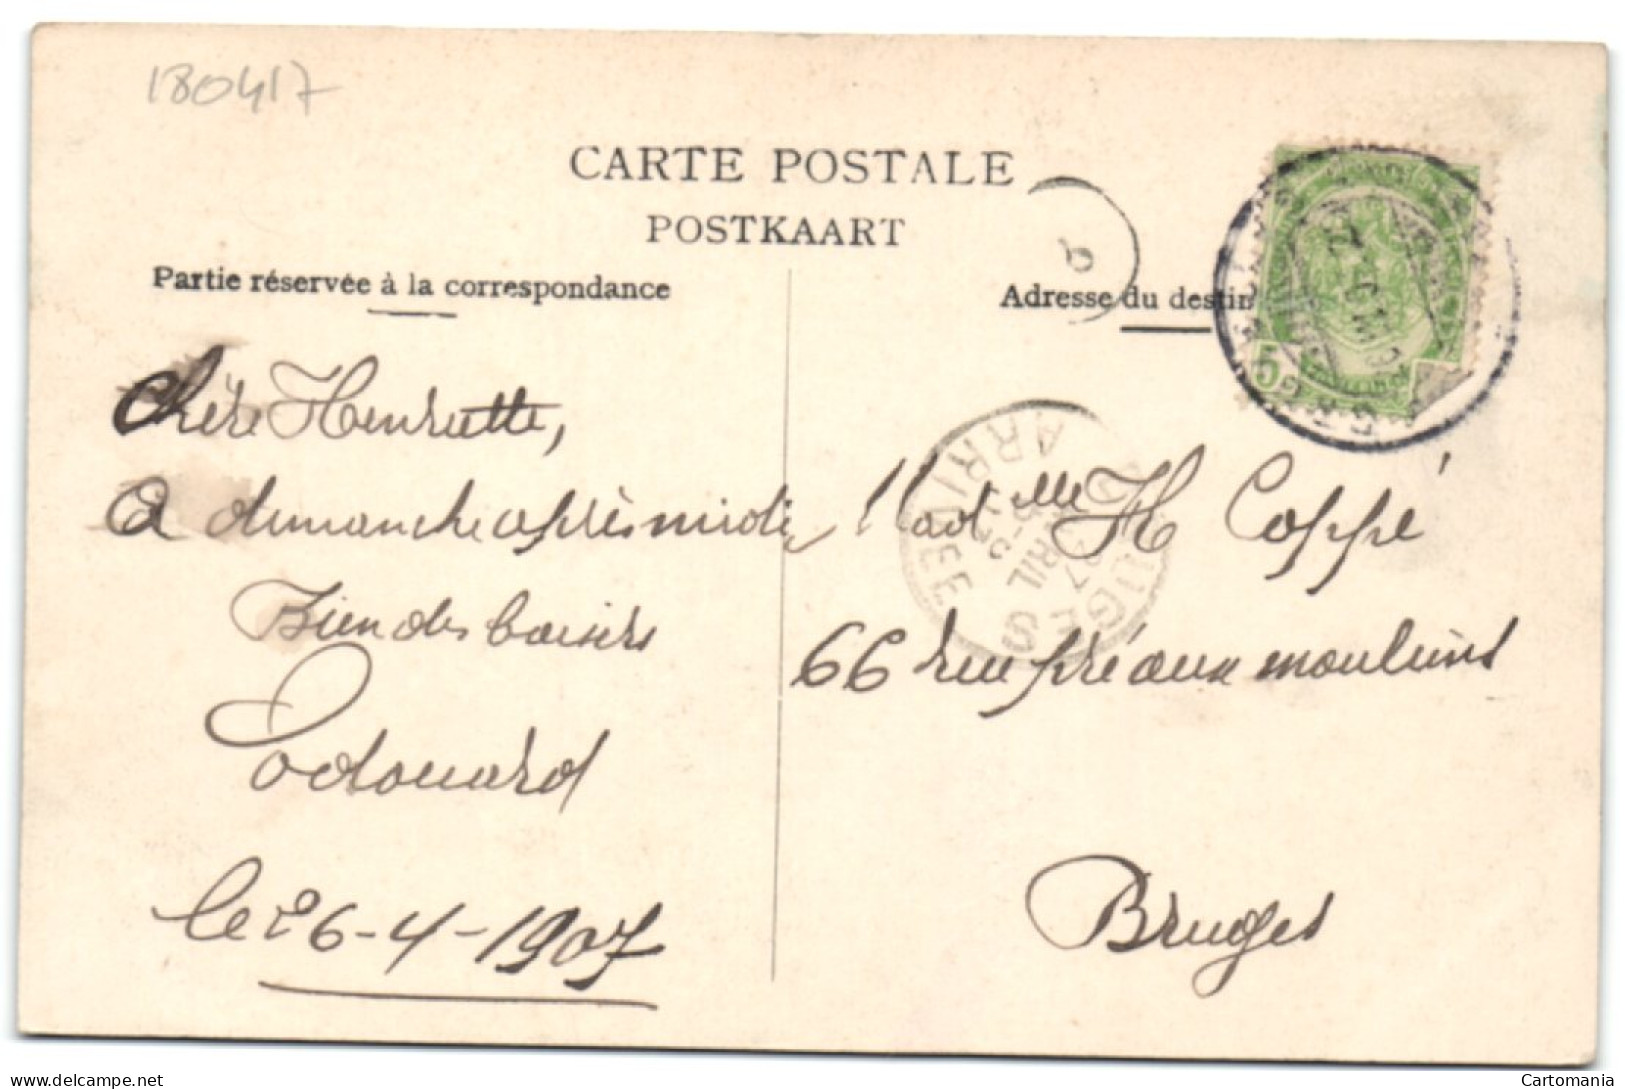 180417
CARTE POSTALE
POSTKAART
Partie réservée à la correspondance
Adresse du destin
5
Chère Henriette,
à dimanche après midi
Bien des baisers
Edouard
le 26-4-1907
Mad elle H Coppé
66 rue pré aux moulins
Bruges
ARRIVEE
AVRIL
delcampe.net
Cartomania